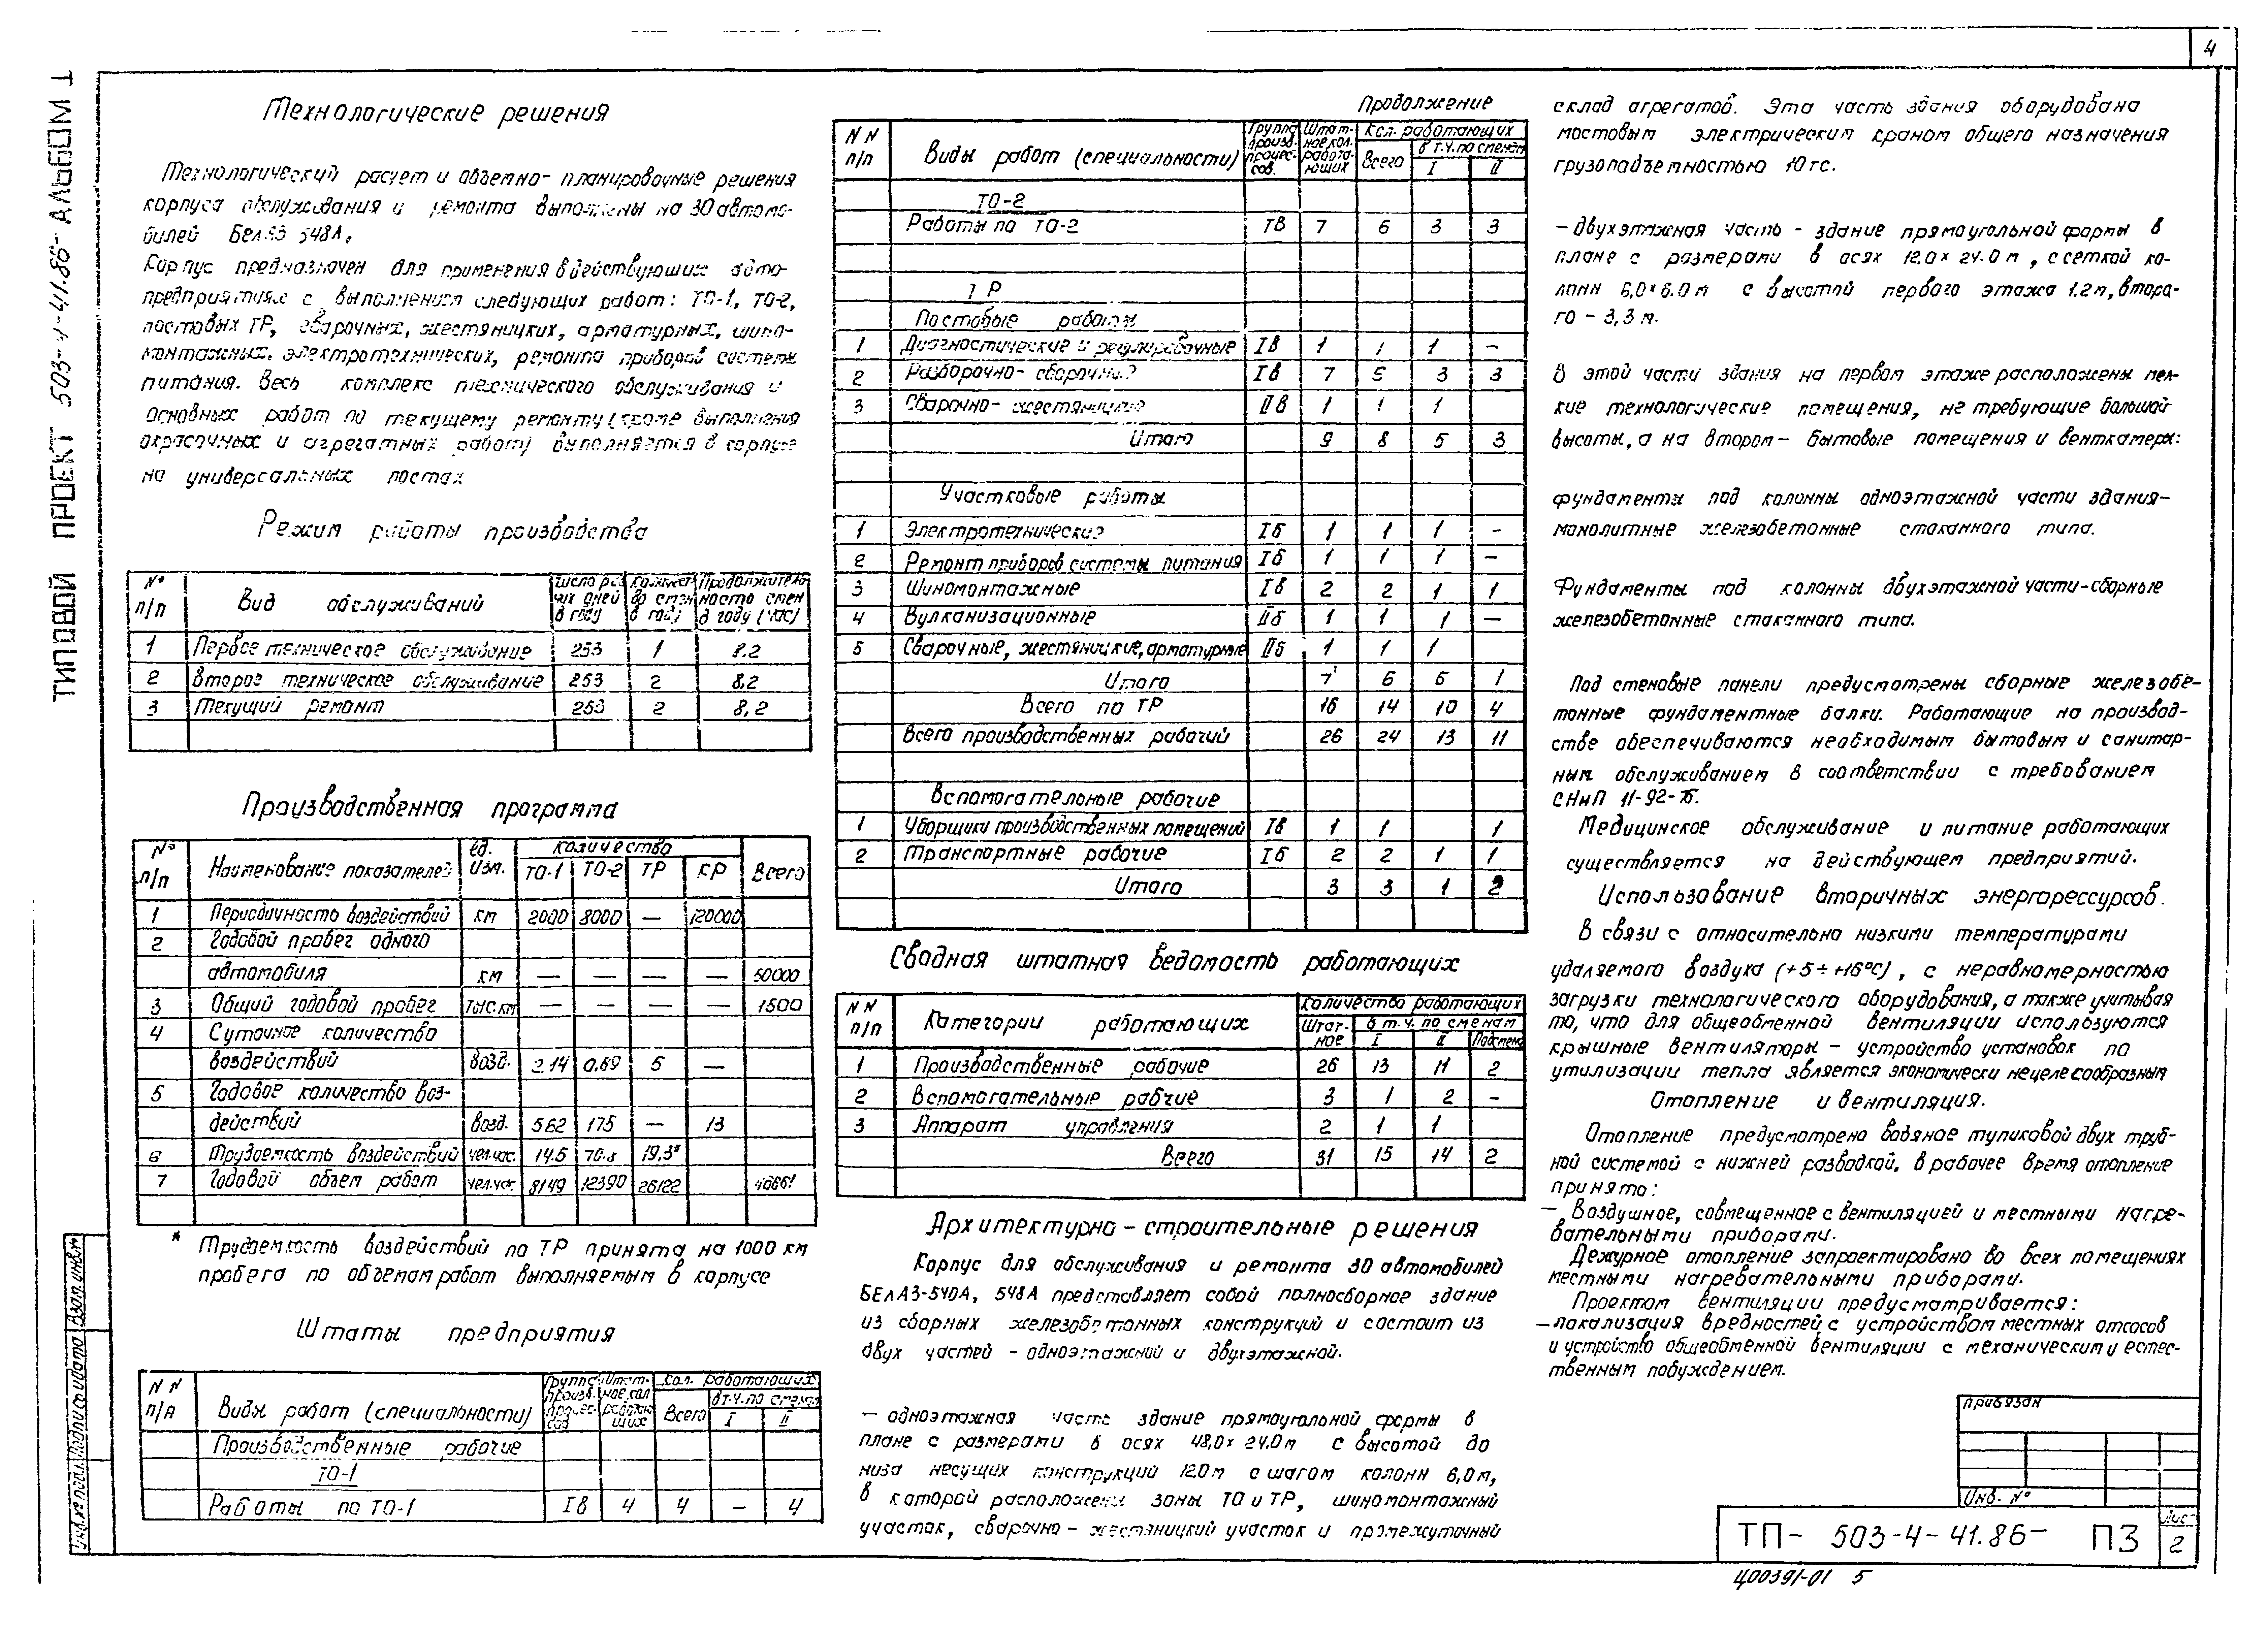 4
ТИПОВОЙ ПРОЕКТ 503-4-41.86- АЛЬБОМ I
Технологические решения
Технологический расчет и объемно- планировочные решения
корпуса обслуживания и ремонта выполнены на 30 автомо-
билей БелАЗ 548А.
Корпус предназначен для применения в действующих авто-
предприятиях с выполнением следующих работ: ТО-1, ТО-2,
постовых ТР, сварочных, жестяницких, арматурных, шино-
монтажных, электротехнических, ремонта приборов системы
питания. Весь комплекс технического обслуживания и
основных работ по текущему ремонту (кроме выполнения
окрасочных и агрегатных работ) выполняется в корпусе
на универсальных постах
Режим работы производства
№ п/п Вид обслуживаний Число рабочих дней в году в год) Продолжительность смен в году (час)
1 Первое техническое обслуживание 253 1 8.2
2 Второе техническое обслуживание 253 2 8,2
3 Текущий ремонт 253 2 8,2
Производственная программа
№ п/п Наименование показателей ед. изм. Количество Всего
ТО-1 ТО-2 ТР КР
1 Периодичность воздействий км 2000 8000 — 120000
2 Годовой пробег одного
автомобиля км — — — — 50000
3 Общий годовой пробег тыс.км — — — — 1500
4 Суточное количество
воздействий возд. 2.14 0.69 5 —
5 Годовое количество воз-
действий возд. 562 175 — 13
6 Трудоемкость воздействий чел.час. 14.5 70.8 19,3*
7 Годовой объем работ чел.час. 8149 12390 26122 46661
* Трудоемкость воздействий по ТР принята на 1000 км
пробега по объемам работ выполняемым в корпусе
Штаты предприятия
NN п/п Виды работ (специальности) Группа произв. процессов Штатное кол. работающих Кол. работающих
Всего в т.ч. по сменам
I II
Производственные рабочие
ТО-1
Работы по ТО-1 Iв 4 4 — 4
Продолжение
NN п/п Виды работ (специальности) Группа произв. процессов. Штатное кол. работающих Кол. работающих
Всего в т.ч. по сменам
I II
ТО-2
Работы по ТО-2 Iв 7 6 3 3
ТР
Постовые работы
1 Диагностические и регулировочные Iв 1 1 1 —
2 Разборочно- сборочные Iв 7 5 3 3
3 Сварочно- жестяницкие IIв 1 1 1
Итого 9 8 5 3
Участковые работы
1 Электротехнические Iб 1 1 1 -
2 Ремонт приборов системы питания Iб 1 1 1 —
3 Шиномонтажные Iв 2 2 1 1
4 Вулканизационные IIб 1 1 1 —
5 Сварочные, жестяницкие, арматурные IIб 1 1 1
Итого 7 6 5 1
Всего по ТР 16 14 10 4
Всего производственных рабочий 26 24 13 11
Вспомогательные рабочие
1 Уборщики производственных помещений Iв 1 1 1
2 Транспортные рабочие Iб 2 2 1 1
Итого 3 3 1 2
Сводная штатная ведомость работающих
NN п/п Категории работающих Количество работающих
Штатное в т.ч. по сменам
I II Подсмена
1 Производственные рабочие 26 13 11 2
2 Вспомогательные рабчие 3 1 2 -
3 Аппарат управления 2 1 1
Всего 31 15 14 2
Архитектурно - строительные решения
Корпус для обслуживания и ремонта 30 автомобилей
БЕЛАЗ-540А, 548А представляет собой полносборное здание
из сборных железобетонных конструкций и состоит из
двух частей - одноэтажной и двухэтажной.
— одноэтажная часть здание прямоугольной формы в
плане с размерами в осях 48,0х 24.0м с высотой до
низа несущих конструкций 12.0м с шагом колонн 6,0м,
в которой расположены зоны ТО и ТР, шиномонтажный
участок, сварочно - жестяницкий участок и промежуточный
склад агрегатов. Эта часть здания оборудована
мостовым электрическим краном общего назначения
грузоподъемностью 10тс.
— двухэтажная часть - здание прямоугольной формы в
плане с размерами в осях 12.0х 24.0м, с сеткой ко-
лонн 6,0х6.0м с высотой первого этажа 1.2м, второ-
го - 3,3м.
В этой части здания на первом этаже расположены мел-
кие технологические помещения, не требующие большой
высоты, а на втором — бытовые помещения и венткамеры:
Фундаменты под колонны одноэтажной части здания—
монолитные железобетонные стаканного типа.
Фундаменты под колонны двухэтажной части-сборные
железобетонные стаканного типа.
Под стеновые панели предусмотрены сборные железобе-
тонные фундаментные балки. Работающие на производ-
стве обеспечиваются необходимым бытовым и санитар-
ным обслуживанием в соответствии с требованием
СНиП 11-92-76.
Медицинское обслуживание и питание работающих
существляется на действующем предприятий.
Использование вторичных энергорессурсов.
В связи с относительно низкими температурами
удаляемого воздуха (+5÷+16°С), с неравномерностью
загрузки технологического оборудования, а также учитывая
то, что для общеобменной вентиляции используются
крышные вентиляторы — устройство установок по
утилизации тепла является экономически нецелесообразным
Отопление и вентиляция.
Отопление предусмотрено водяное тупиковой двух труб-
ной системой с нижней разводкой, в рабочее время отопление
принято:
— Воздушное, совмещенное с вентиляцией и местными нагре-
вательными приборами.
Дежурное отопление запроектировано во всех помещениях
местными нагревательными приборами.
Проектом вентиляции предусматривается:
—локализация вредностей с устройством местных отсосов
и устройство общеобменной вентиляции с механическим и естес-
твенным побуждением.
Привязан
Инв. №
ТП- 503-4-41.86- ПЗ
Лист
2
400391-01 5
Инв.№ подл. Подпись и дата Взам. инв.№